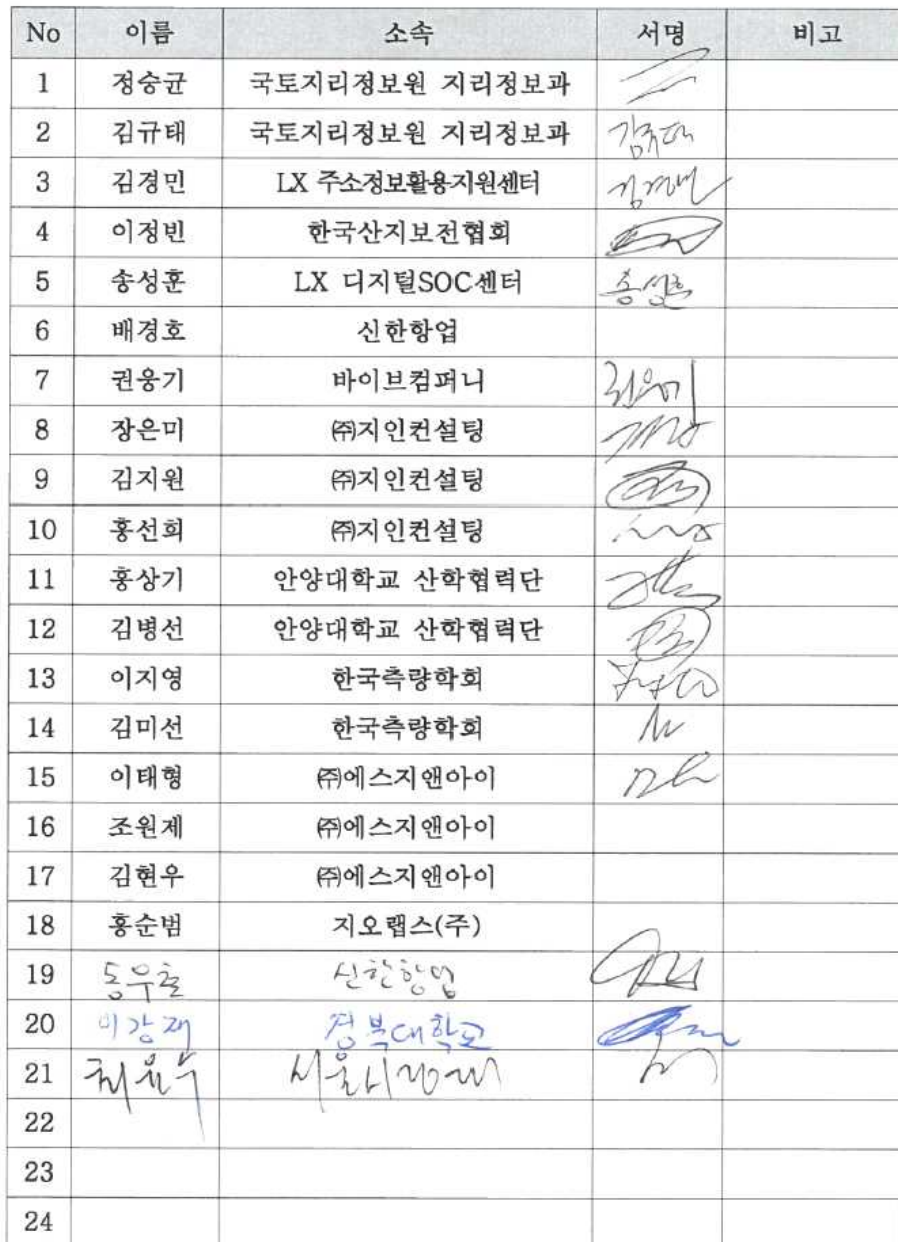 No 이름 소속 서명 비고
1 정승균 국토지리정보원 지리정보과
2 김규태 국토지리정보원 지리정보과 김규태
3 김경민 LX 주소정보활용지원센터
4 이정빈 한국산지보전협회
5 송성훈 LX 디지털SOC센터 송성훈
6 배경호 신한항업
7 권웅기 바이브컴퍼니
8 장은미 ㈜지인컨설팅
9 김지원 ㈜지인컨설팅
10 홍선희 ㈜지인컨설팅
11 홍상기 안양대학교 산학협력단
12 김병선 안양대학교 산학협력단
13 이지영 한국측량학회
14 김미선 한국측량학회
15 이태형 ㈜에스지앤아이
16 조원제 ㈜에스지앤아이
17 김현우 ㈜에스지앤아이
18 홍순범 지오랩스(주)
19 신한항업
20 이강재 경북대학교
21 최윤수
22
23
24